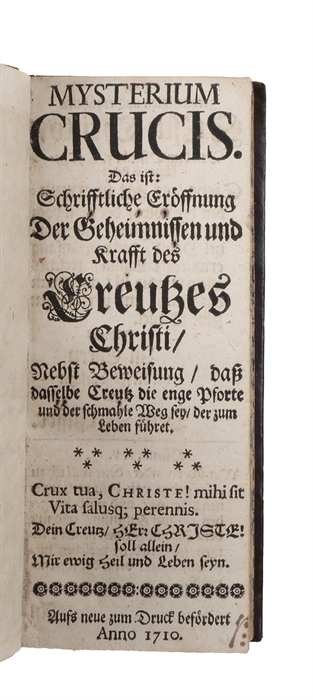 MYSTERIUM
CRUCIS.
Das ist:
Schrifftliche Eröffnung
Der Geheimnissen und
Krafft des
Creutzes
Christi/
Nebst Beweisung / daß
dasselbe Creutz die enge Pforte
und der schmahle Weg sey/ der zum
Leben führet.
* * * * * * *
Crux tua, CHRISTE! mihi sit
Vita salusq; perennis.
Dein Creutz/ HErr CHRISTE!
soll allein/
Mir ewig Heil und Leben seyn.
Aufs neue zum Druck befördert
Anno 1710.